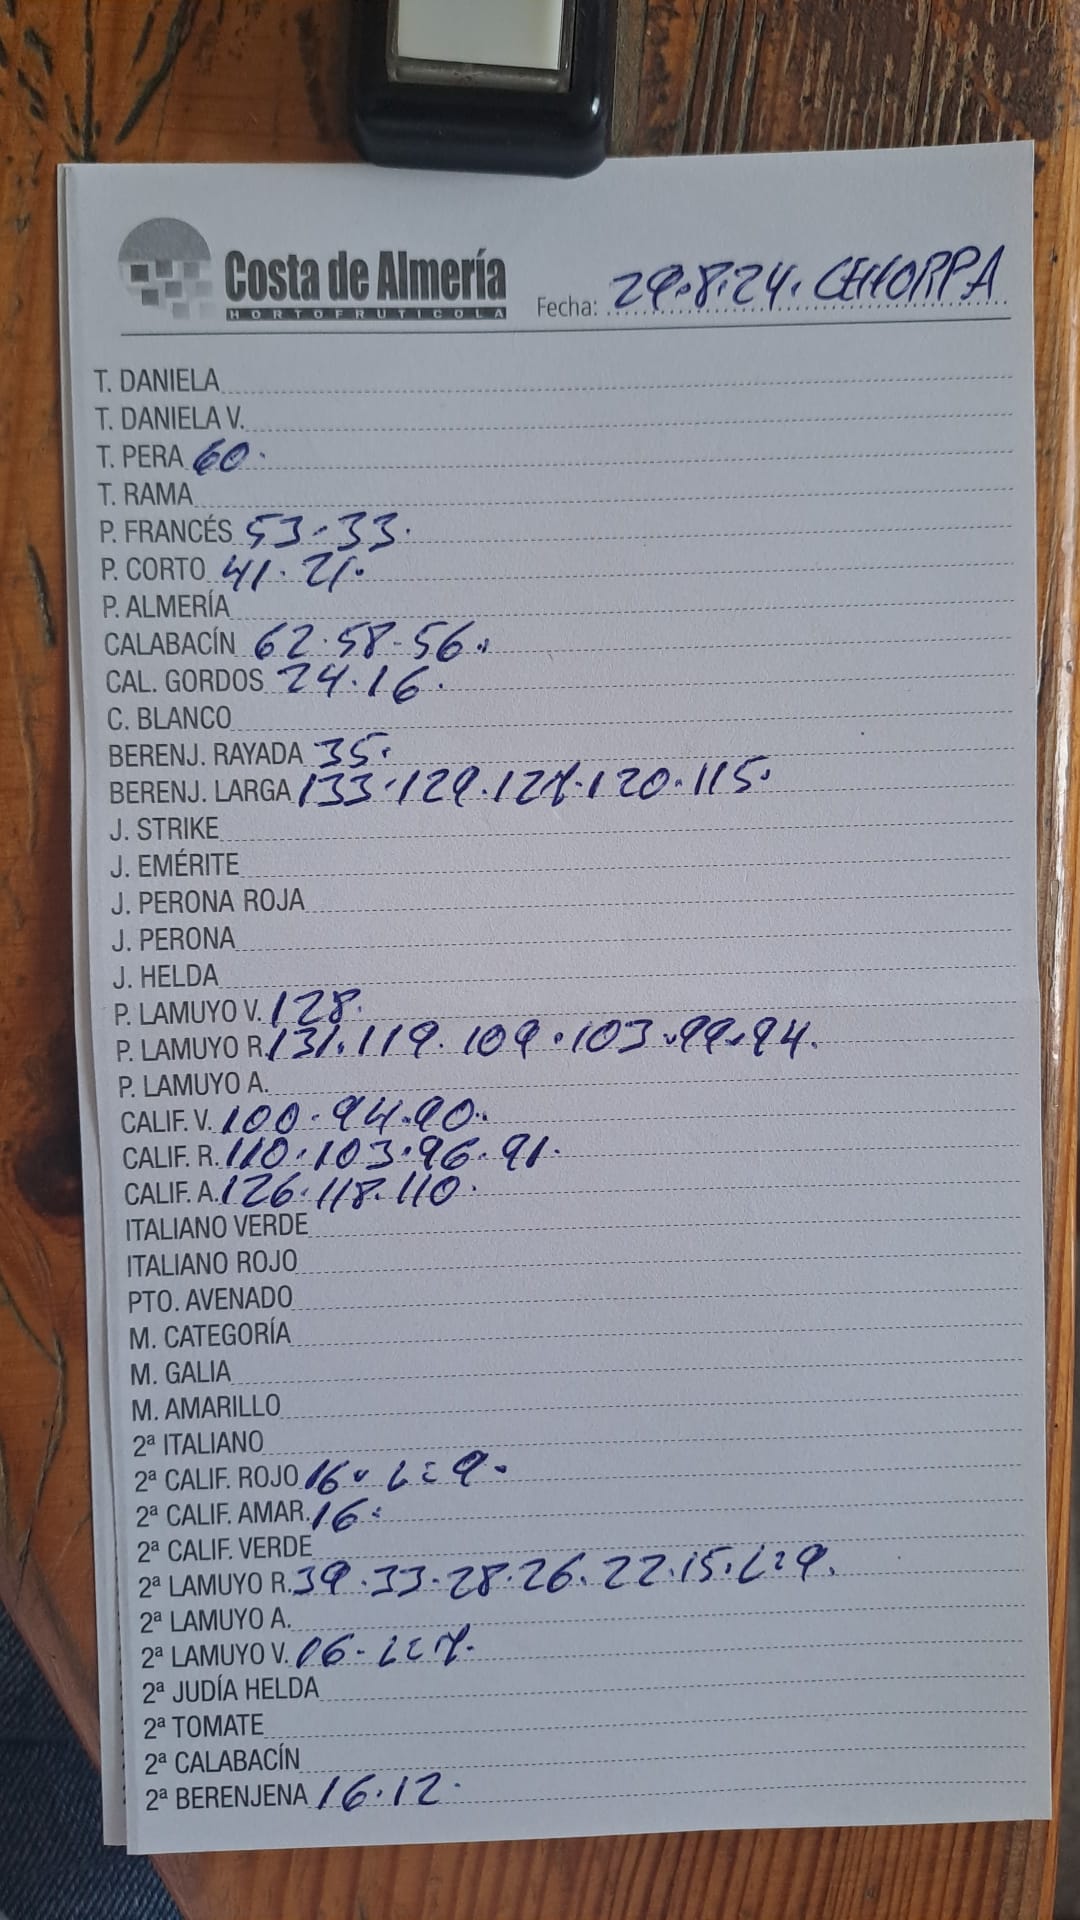 Costa de Almería
HORTOFRUTICOLA
Fecha: 29.8.24. CEHORPA
T. DANIELA
T. DANIELA V.
T. PERA 60.
T. RAMA
P. FRANCÉS 53.33.
P. CORTO 41.21.
P. ALMERÍA
CALABACÍN 62.58.56.
CAL. GORDOS 24.16.
C. BLANCO
BERENJ. RAYADA 35.
BERENJ. LARGA 133.129.127.120.115.
J. STRIKE
J. EMÉRITE
J. PERONA ROJA
J. PERONA
J. HELDA
P. LAMUYO V. 128.
P. LAMUYO R. 131.119.109.103.99.94.
P. LAMUYO A.
CALIF. V. 100.94.90.
CALIF. R. 110.103.96.91.
CALIF. A. 126.118.110.
ITALIANO VERDE
ITALIANO ROJO
PTO. AVENADO
M. CATEGORÍA
M. GALIA
M. AMARILLO
2ª ITALIANO
2ª CALIF. ROJO 16. L=9.
2ª CALIF. AMAR. 16.
2ª CALIF. VERDE
2ª LAMUYO R. 39.33.28.26.22.15.L=9.
2ª LAMUYO A.
2ª LAMUYO V. 16. L=7.
2ª JUDÍA HELDA
2ª TOMATE
2ª CALABACÍN
2ª BERENJENA 16.12.